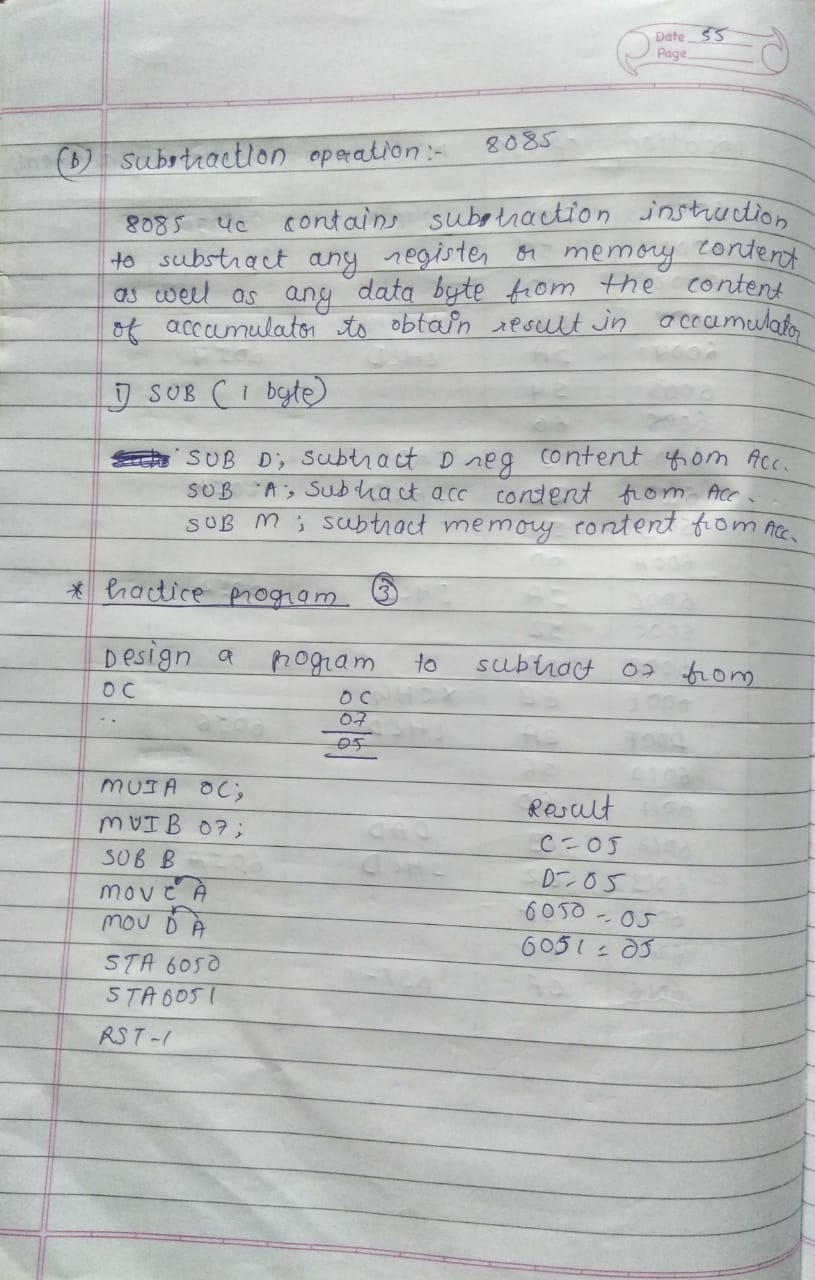 Date 55
Page
(b) substraction operation :- 8085
8085 uc contains substraction instruction
to substract any register or memory content
as well as any data byte from the content
of accumulator to obtain result in accumulator
1) SUB ( 1 byte)
SUB D; subtract D reg content from Acc.
SUB A; Subtract acc content from Acc.
SUB M ; subtract memory content from Acc.
* Practice program ③
Design a program to subtract 07 from
OC
OC
07
05
MVIA OC;
MVIB 07;
SUB B
MOV C A
MOV D A
STA 6050
STA6051
RST-1
Result
C=05
D=05
6050 = 05
6051 = 05